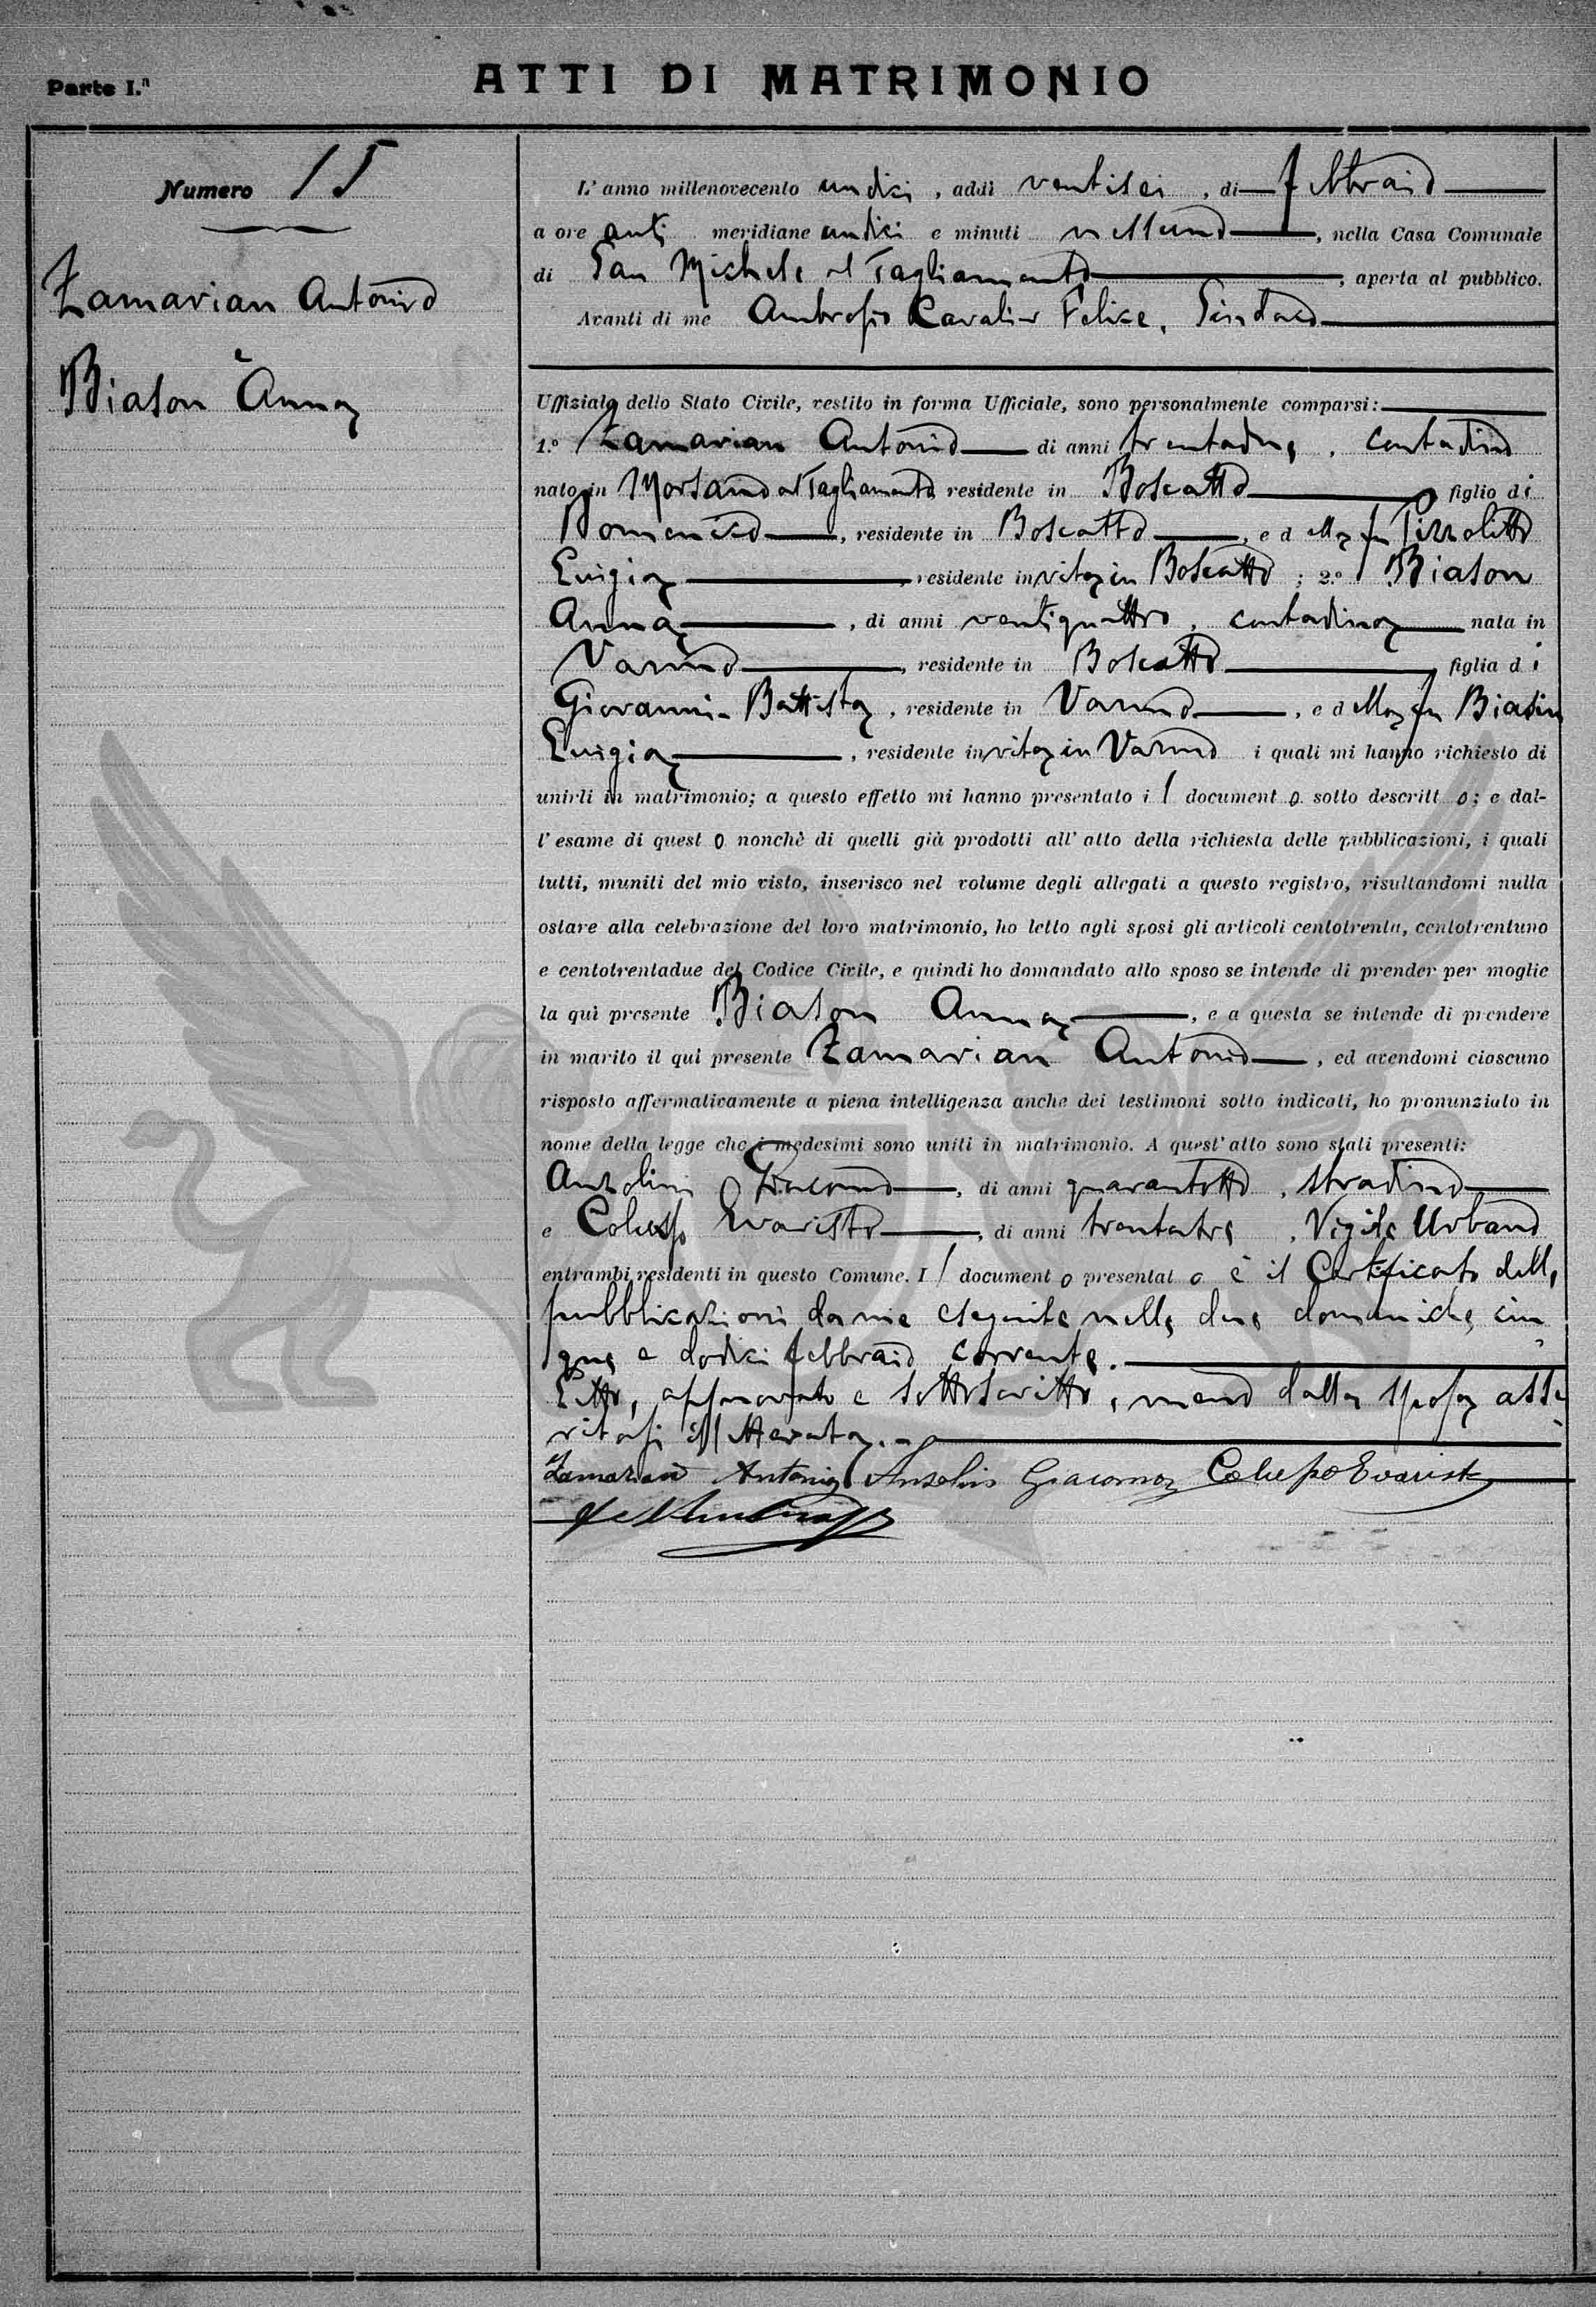 Parte I.ª
ATTI DI MATRIMONIO
Numero 15
Zamarian Antonio
e
Biason Anna
L'anno millenovecento undici, addì ventisei, di febbraio
a ore anti meridiane undici e minuti nessuno, nella Casa Comunale
di San Michele al Tagliamento, aperta al pubblico.
Avanti di me Ambrosio Cavalier Felice, Sindaco
Uffiziale dello Stato Civile, vestito in forma Ufficiale, sono personalmente comparsi:
1.º Zamarian Antonio di anni trentadue, contadino
nato in Morsano al Tagliamento residente in Boscatto figlio di
Domenico, residente in Boscatto, e della fu Pizzolitto
Luigia residente in vita in Boscatto; 2.º Biason
Anna, di anni ventiquattro, contadina nata in
Varmo, residente in Boscatto figlia di
Giovanni-Battista, residente in Varmo, e della fu Biasin
Luigia, residente in vita in Varmo i quali mi hanno richiesto di
unirli in matrimonio; a questo effetto mi hanno presentato il documento sotto descritto; e dal-
l'esame di questo nonchè di quelli già prodotti all'atto della richiesta delle pubblicazioni, i quali
tutti, muniti del mio visto, inserisco nel volume degli allegati a questo registro, risultandomi nulla
ostare alla celebrazione del loro matrimonio, ho letto agli sposi gli articoli centotrenta, centotrentuno
e centotrentadue del Codice Civile, e quindi ho domandato allo sposo se intende di prender per moglie
la quì presente Biason Anna, e a questa se intende di prendere
in marito il quì presente Zamarian Antonio, ed avendomi ciascuno
risposto affermativamente a piena intelligenza anche dei testimoni sotto indicati, ho pronunziato in
nome della legge che i medesimi sono uniti in matrimonio. A quest'atto sono stati presenti:
Anzolin Giacomo, di anni quarantotto, stradino
e Colusso Evaristo, di anni trentatre, Vigile Urbano
entrambi residenti in questo Comune. Il documento presentato è il Certificato delle
pubblicazioni da me eseguite nelle due domeniche cin
que e dodici febbraio corrente.
Letto, approvato e sottoscritto, meno dalla sposa asse
ritasi illetterata.
Zamarian Antonio Anzolin Giacomo Colusso Evaristo